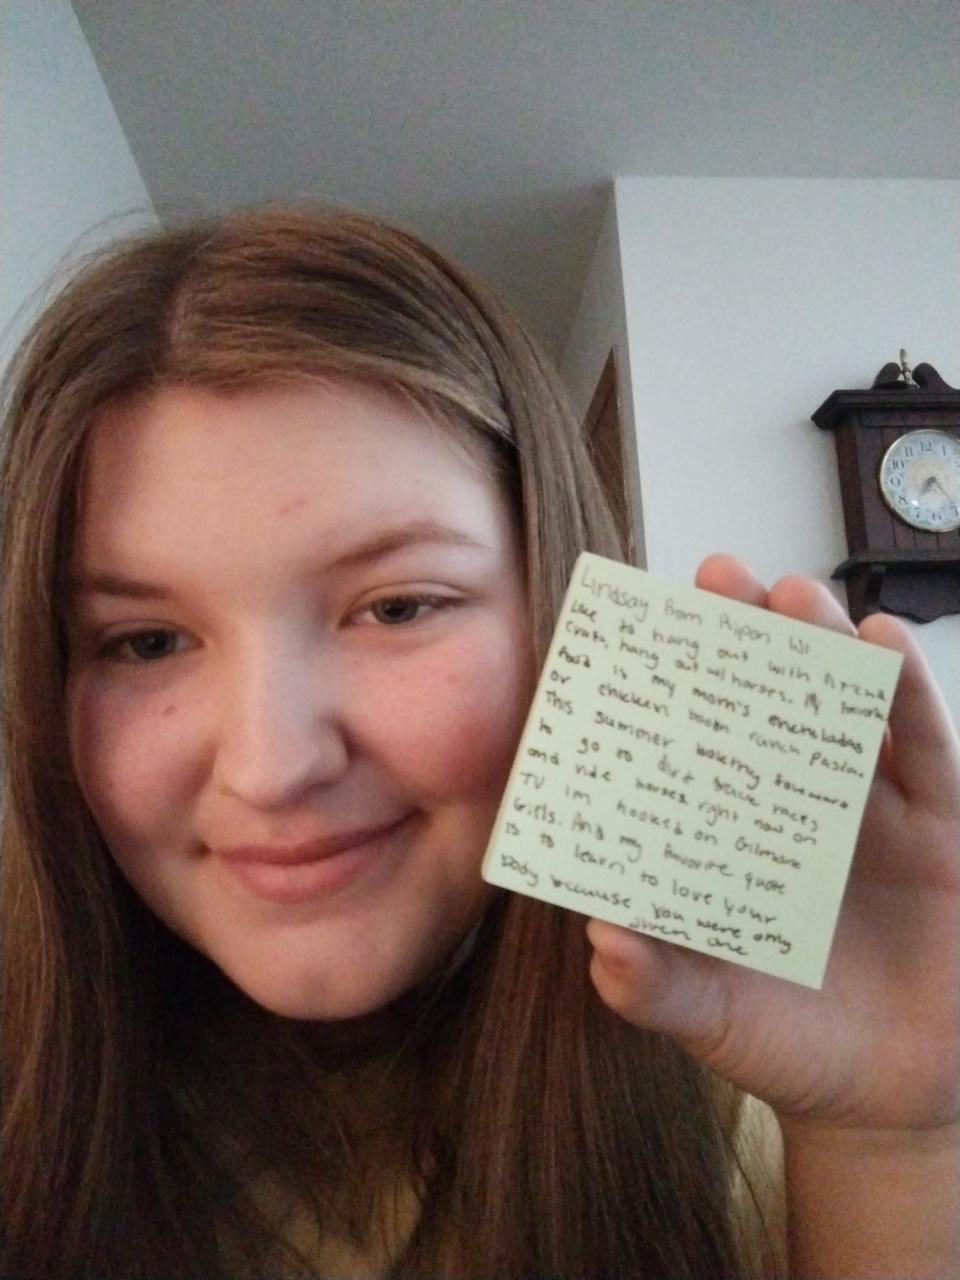 Lindsay from Ripon WI.
Like to hang out with friend
craft, hang out w/ horses. My favorite
food is my mom's enchaladas
or chicken bacon ranch pasta.
This summer looking forward
to go to dirt track races
and ride horses right now on
TV im hooked on Gilmore
Girls. And my favorite quote
is to learn to love your
body because you were only
given one
11 12 1
10
8
7 6 5